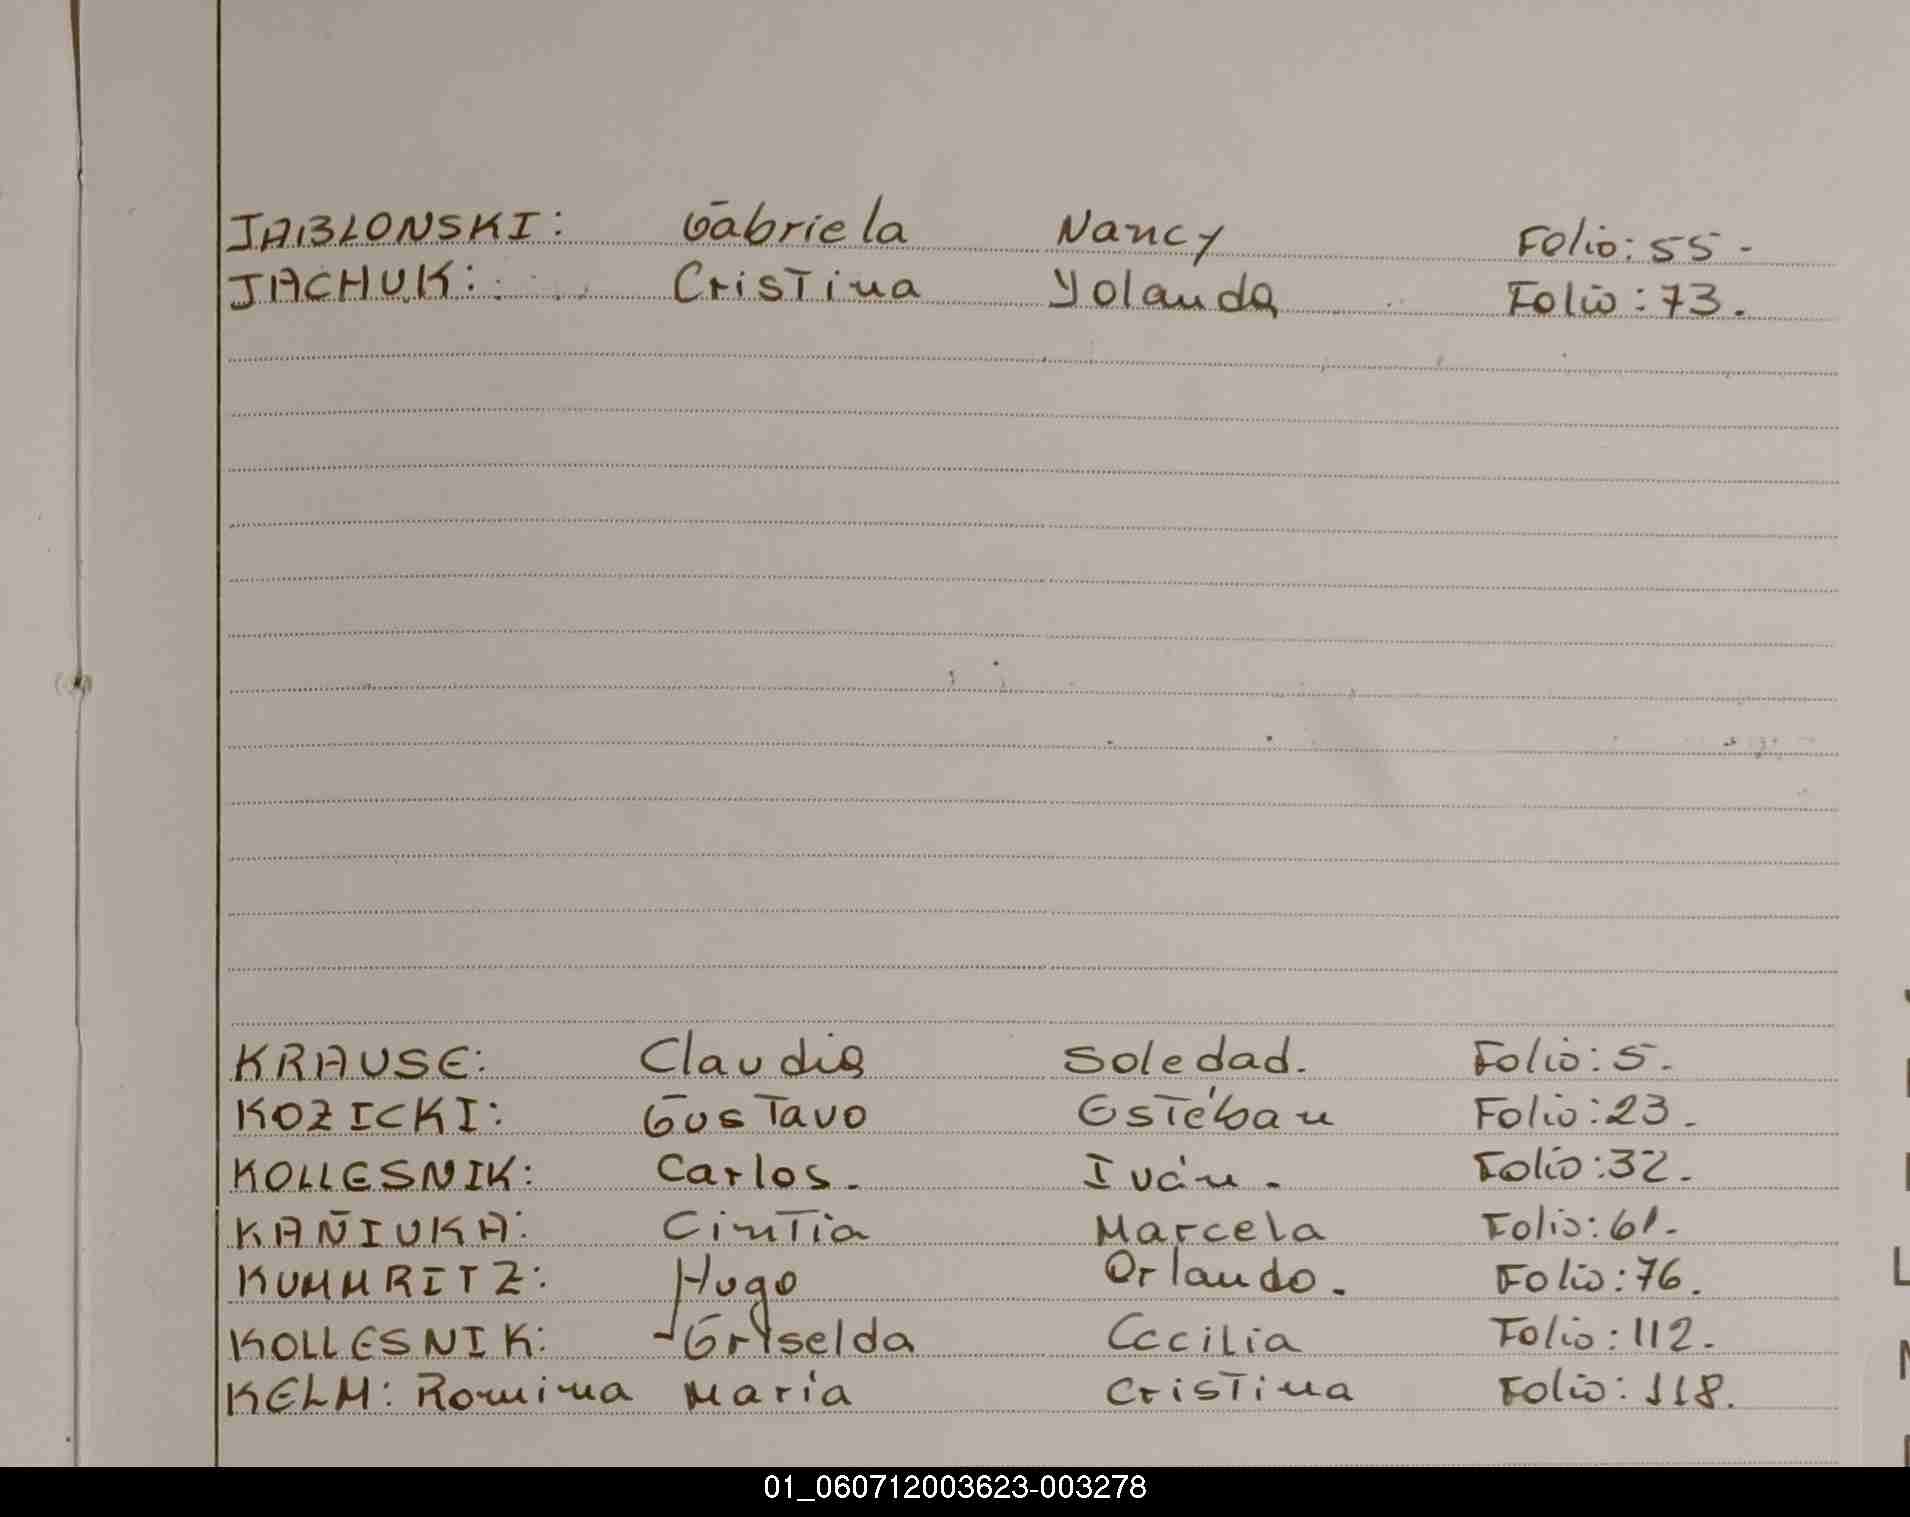 JABLONSKI: Gabriela Nancy Folio: 55-
JACHUK: Cristina Yolanda Folio: 73.
KRAUSE: Claudia Soledad. Folio: 5.
KOZICKI: Gustavo Estéban Folio: 23.
KOLLESNIK: Carlos. Iván. Folio: 32.
KAÑIUKA: Cintia Marcela Folio: 61.
KUMMRITZ: Hugo Orlando. Folio: 76.
KOLLESNIK: Griselda Cecilia Folio: 112.
KELM: Romina María Cristina Folio: 118.
01_060712003623-003278